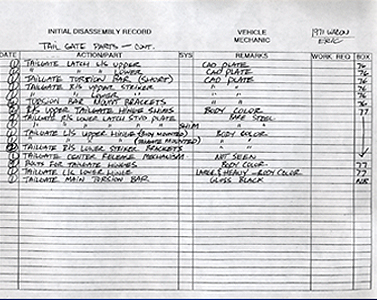 INITIAL DISASSEMBLY RECORD VEHICLE 1971 WAGON
MECHANIC ERIC
TAIL GATE PARTS — CONT.
DATE ACTION/PART SYS REMARKS WORK REQ BOX
① TAILGATE LATCH L/S UPPER CAD PLATE 76
① " " " LOWER CAD PLATE 76
① TAILGATE TORSION BAR (SHORT) CAD PLATE 76
① TAILGATE R/S UPPER STRIKER " " 76
① " " LOWER " " " 76
② TORSION BAR MOUNT BRACKETS " " 76
R/S UPPER TAILGATE HINGE SHIMS BODY COLOR 77
TAILGATE R/S LOWER LATCH STUD PLATE BARE STEEL
" " " " " SHIM " "
① TAILGATE L/S UPPER HINGE (BODY MOUNTED) BODY COLOR
① " " " " (TAILGATE MOUNTED) " "
② TAILGATE R/S LOWER STRIKER BRACKETS "
① TAILGATE CENTER RELEASE MECHANISM NOT SEEN
BOLTS FOR TAILGATE HINGES BODY COLOR 77
① TAILGATE L/S LOWER HINGE LARGE & HEAVY – BODY COLOR 77
① TAILGATE MAIN TORSION BAR GLOSS BLACK